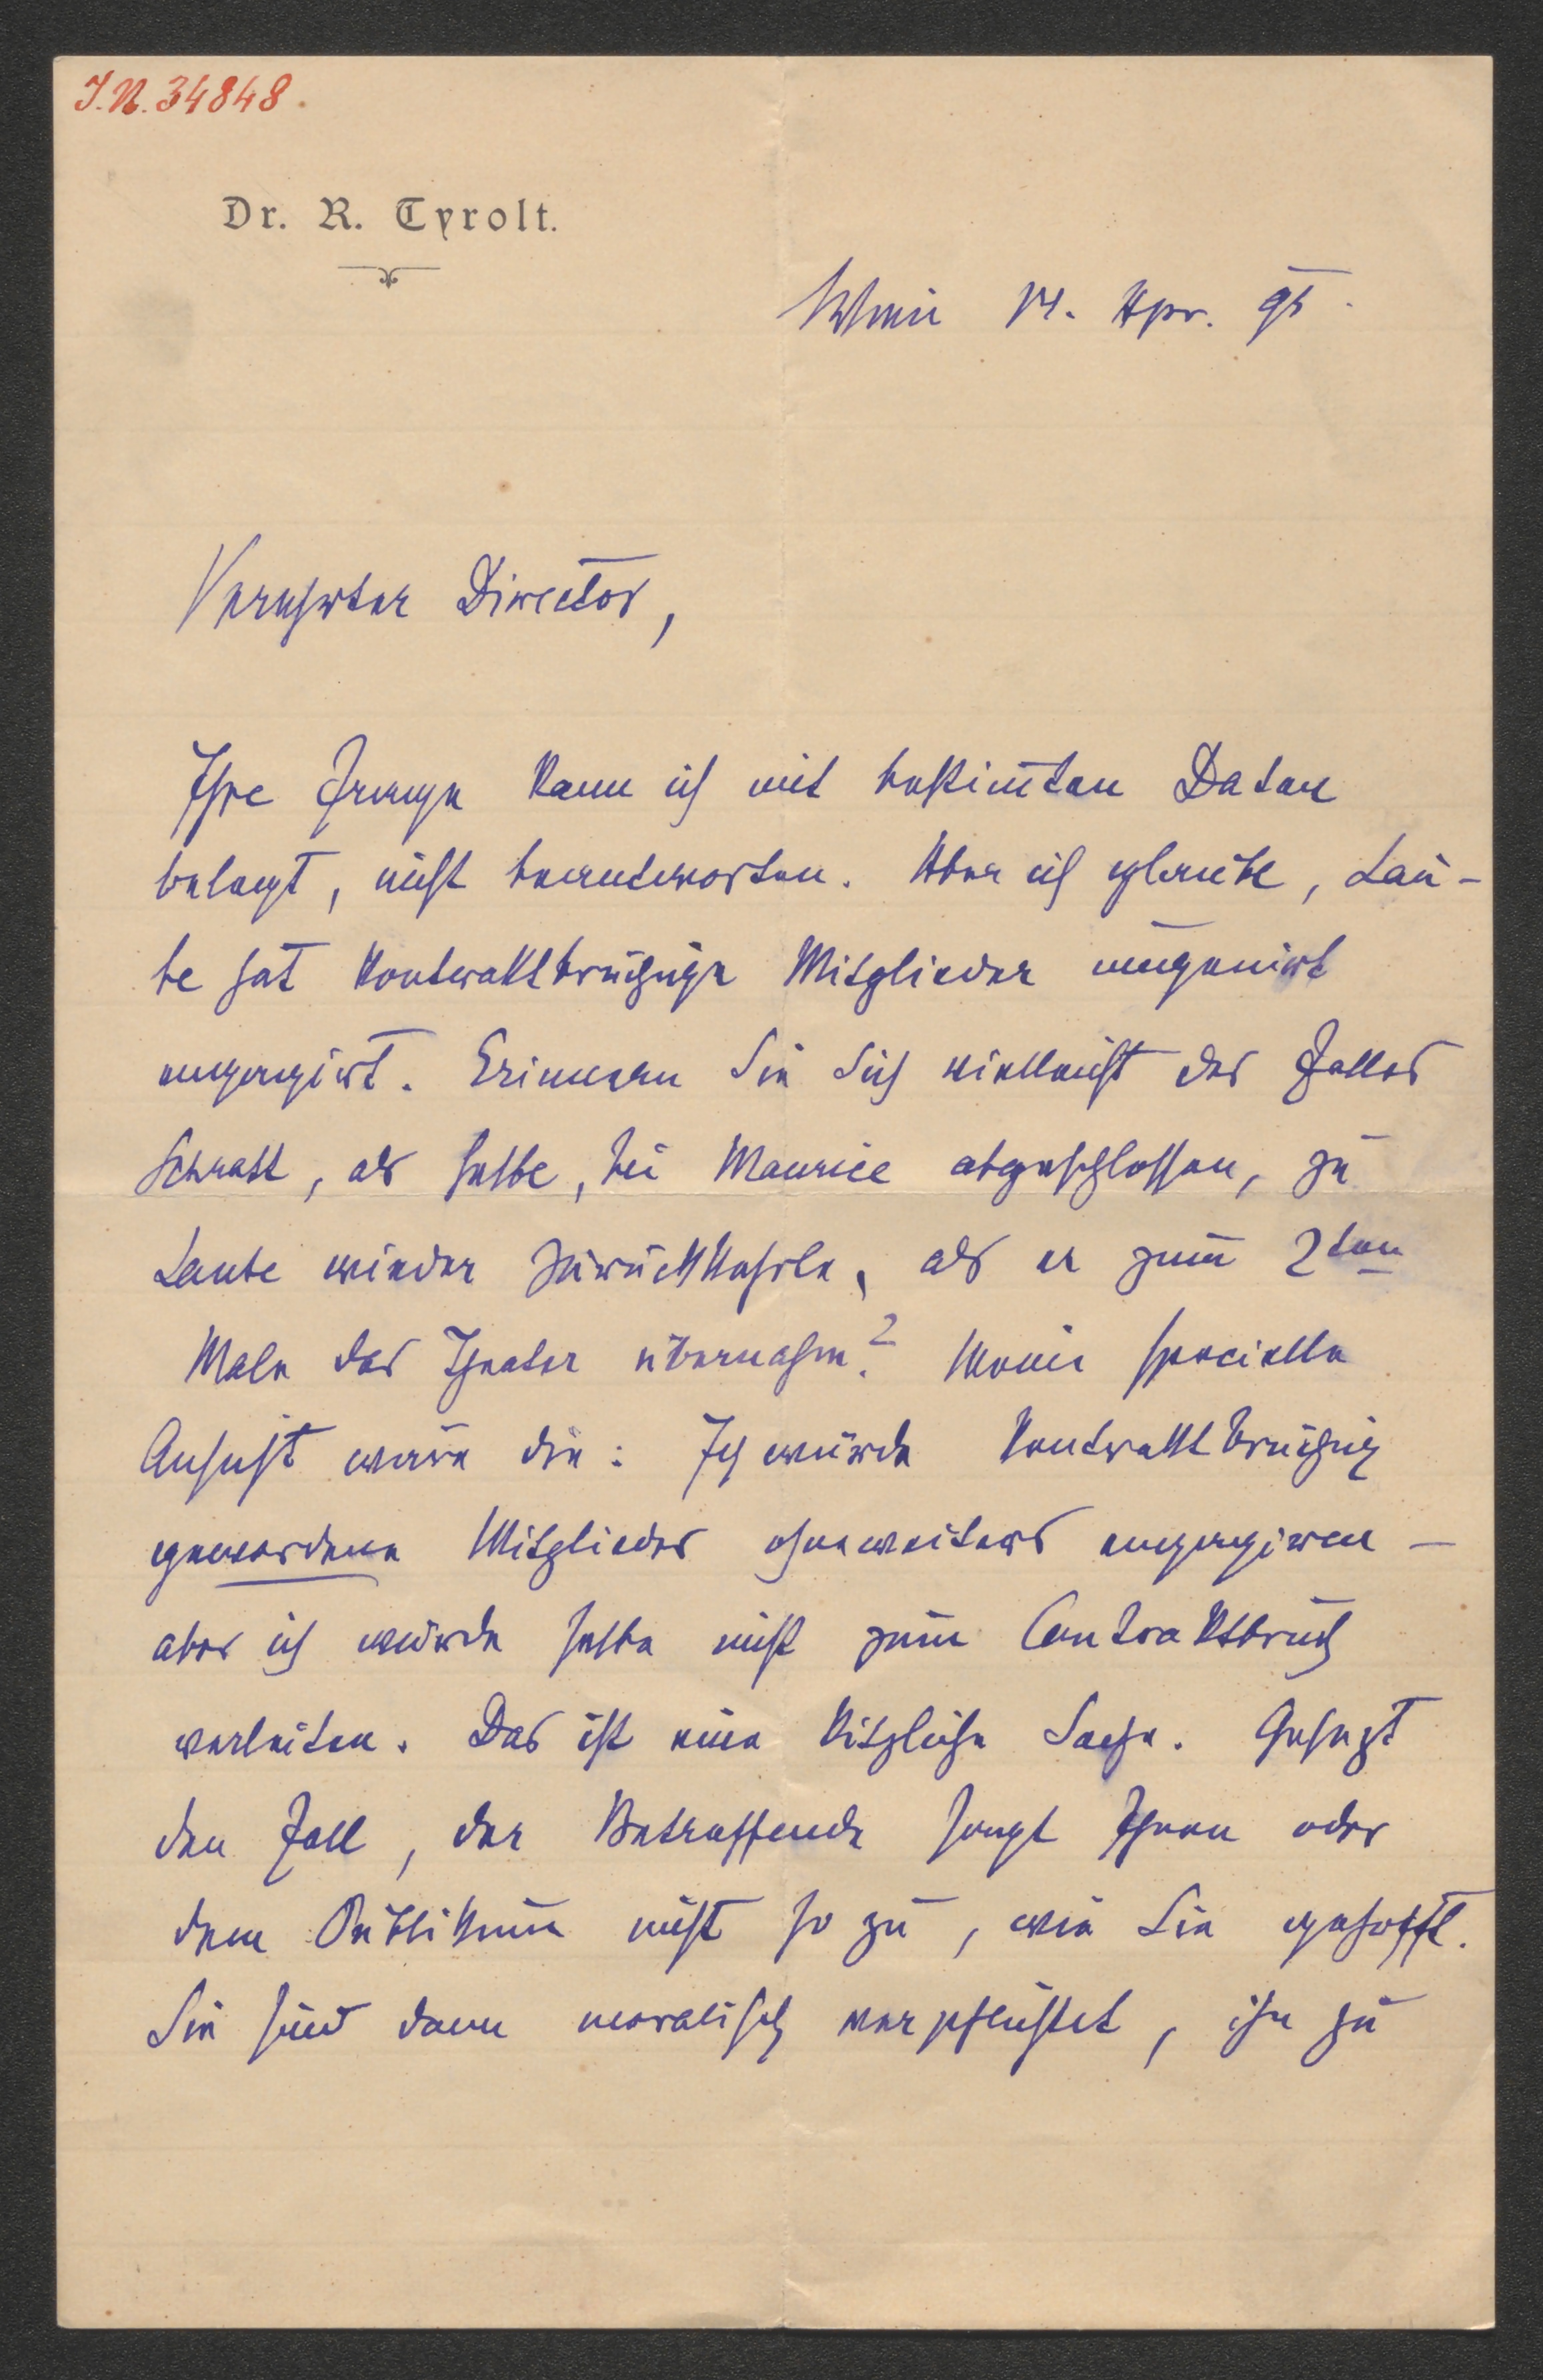 I.N. 34848.
Dr. R. Tyrolt.
Wien 14. Apr. 95.
Verehrter Director,
Ihre Frage kann ich mit bestim̄ten Daten
belegt, nicht beantworten. Aber ich glaube, Lau-
be hat kontraktbrüchige Mitglieder ungenirt
engagirt. Erinnern Sie Sich vielleicht des Falles
Schratt, als selbe, bei Maurice abgeschlossen, zu
Laube wieder zurückkehrte, als er zum 2ten
Male das Theater übernahm? Meine specielle
Ansicht wäre die: Ich würde kontraktbrüchig
gewordene Mitglieder ohneweiters engagiren –
aber ich würde selbe nicht zum Contraktbruch
verleiten. Das ist eine kitzliche Sache. Gesezt
den Fall, der Betreffende sagt Ihnen oder
dem Publikum nicht so zu, wie Sie gehofft.
Sie sind dann moralisch verpflichtet, ihn zu